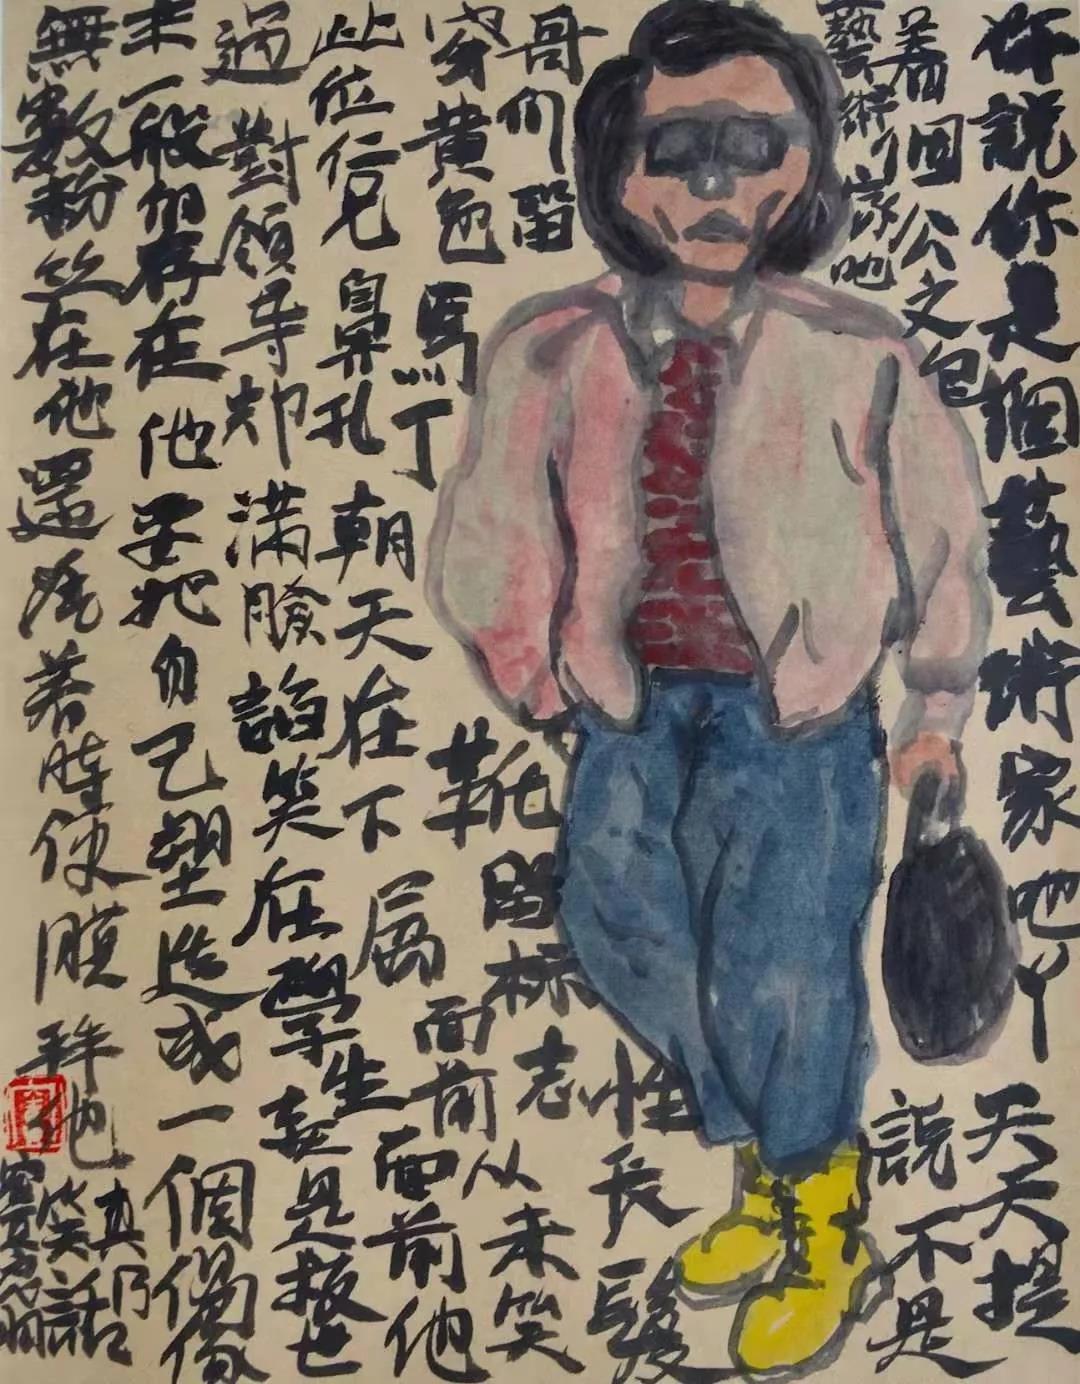 你說你是個藝術家吧丫天天提
着固公文包
說不是
藝術家吧
哥们留
穿黃色馬丁
靴留标志性長髮
此位仁兄鼻孔朝天在下属面前从未笑
過對領导却满臉諂笑在學生面前他
竟是救世
主一般的存在他要把自己塑造成一個偶像
無數粉丝在他還活着時便膜拜他
真乃
笑話